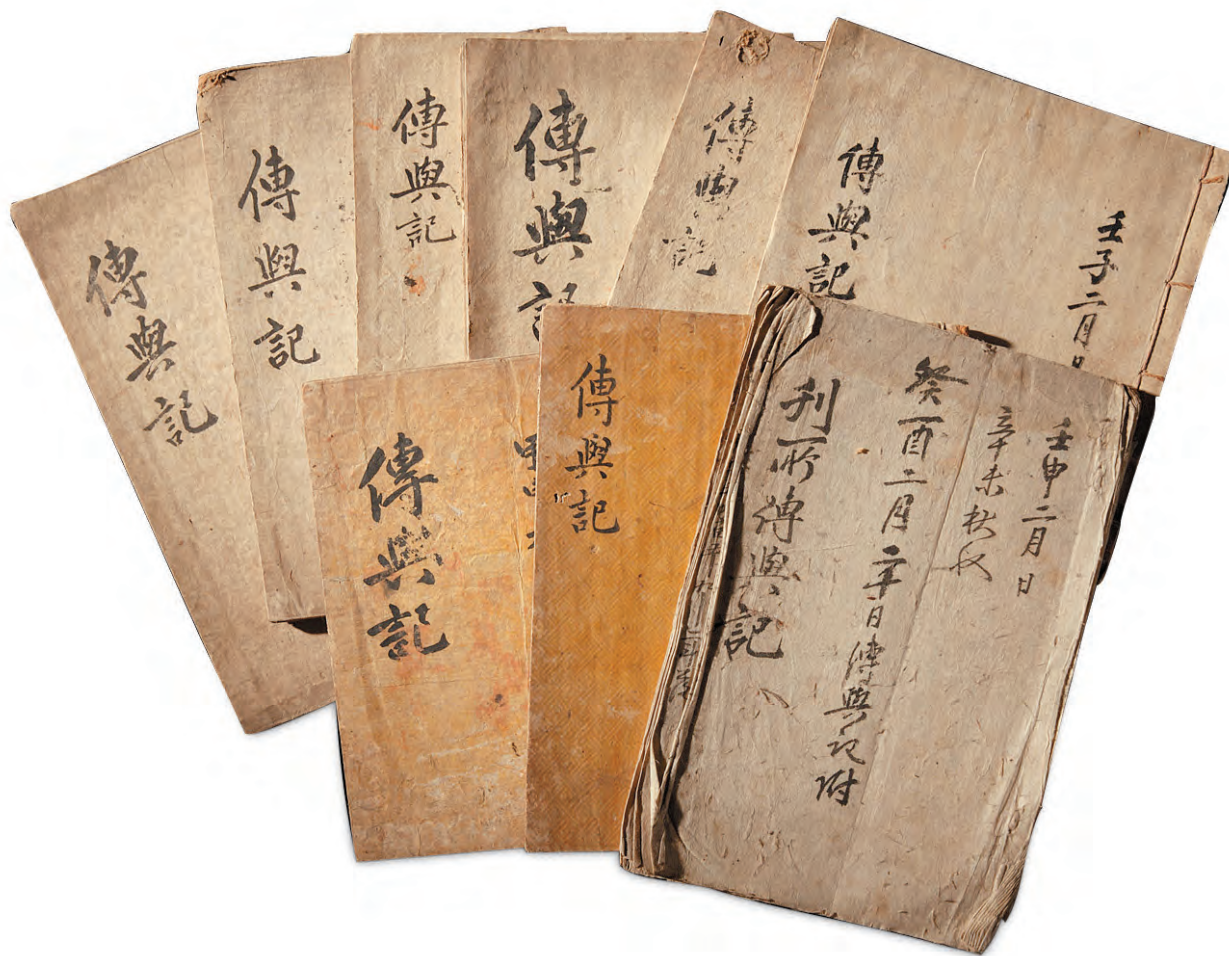 傳與記
傳與記
傳與記
傳與記
傳與記
壬子二月日
傳與記
傳與記
傳與記
壬申二月日
辛未秋収
癸酉二月二十日傳與記附
所傳與記